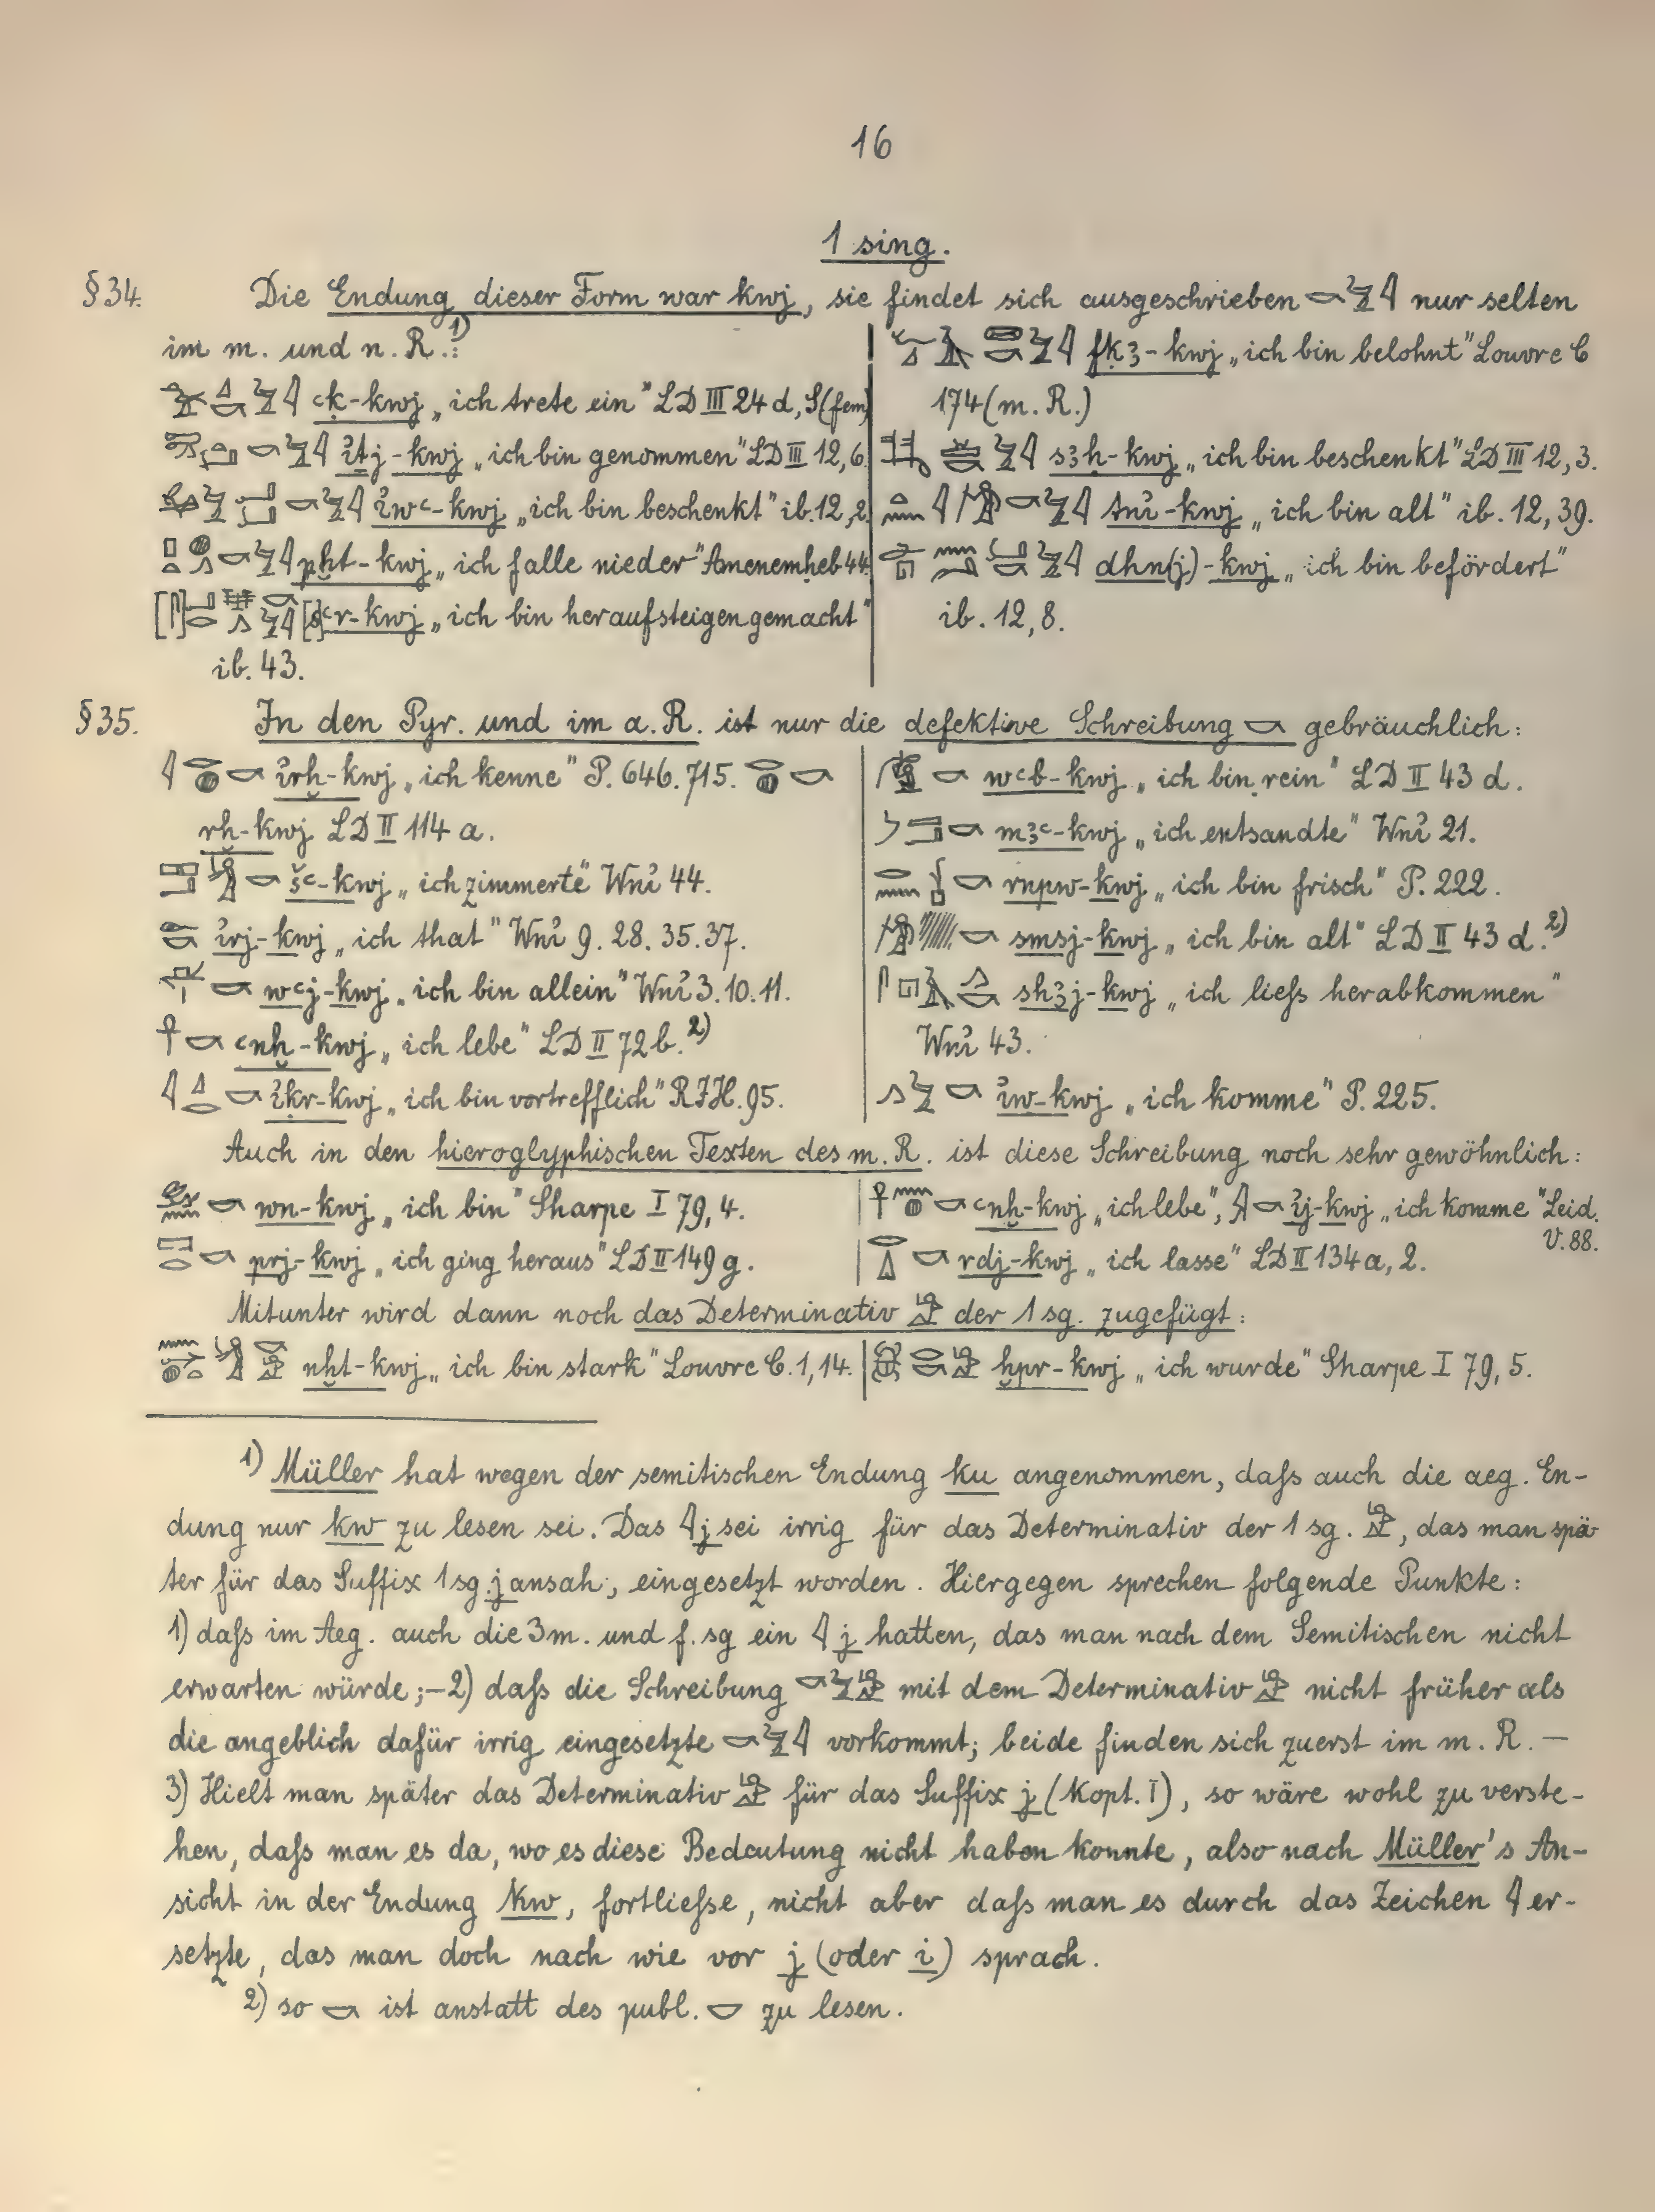 16
1 sing.
§ 34. Die Endung dieser Form war kwj, sie findet sich ausgeschrieben 𓎡𓅱𓇋 nur selten
im m. und n. R.:¹⁾
ꜥḳ-kwj „ich trete ein" LD III 24 d, S (fem)
ỉṯj-kwj „ich bin genommen" LD III 12, 6.
ỉwꜥ-kwj „ich bin beschenkt" ib. 12, 2
pḫt-kwj „ich falle nieder" Amenemḥeb 44.
[s]ꜥr-kwj „ich bin heraufsteigen gemacht"
ib. 43.
fḳꜣ-kwj „ich bin belohnt" Louvre C
174 (m. R.)
sꜣḥ-kwj „ich bin beschenkt" LD III 12, 3.
tnỉ-kwj „ich bin alt" ib. 12, 39.
dhn(j)-kwj „ich bin befördert"
ib. 12, 8.
§ 35. In den Pyr. und im a. R. ist nur die defektive Schreibung 𓎡 gebräuchlich:
𓇋𓂋𓐍𓎡 ỉrḫ-kwj „ich kenne" P. 646. 715. 𓂋𓐍𓎡
rḫ-kwj LD II 114 a.
šꜥ-kwj „ich zimmerte" Wnỉ 44.
ỉrj-kwj „ich that" Wnỉ 9. 28. 35. 37.
wꜥj-kwj „ich bin allein" Wnỉ 3. 10. 11.
𓋹𓎡 ꜥnḫ-kwj „ich lebe" LD II 72 b.²⁾
𓇋𓈎𓂋𓎡 ỉḳr-kwj „ich bin vortrefflich" RJH. 95.
wꜥb-kwj „ich bin rein" LD II 43 d.
mꜣꜥ-kwj „ich entsandte" Wnỉ 21.
rnpw-kwj „ich bin frisch" P. 222.
smsj-kwj „ich bin alt" LD II 43 d.²⁾
shꜣj-kwj „ich ließ herabkommen"
Wnỉ 43.
𓂻𓅱𓎡 ỉw-kwj „ich komme" P. 225.
Auch in den hieroglyphischen Texten des m. R. ist diese Schreibung noch sehr gewöhnlich:
wn-kwj „ich bin" Sharpe I 79, 4.
𓉐𓂋𓎡 prj-kwj „ich ging heraus" LD II 149 g.
𓋹𓈖𓐍𓎡 ꜥnḫ-kwj „ich lebe", 𓇍𓎡 ỉj-kwj „ich komme" Leid.
V. 88.
𓂋𓏙𓎡 rdj-kwj „ich lasse" LD II 134 a, 2.
Mitunter wird dann noch das Determinativ 𓀀 der 1 sg. zugefügt:
nḫt-kwj „ich bin stark" Louvre C. 1, 14.
𓆣𓂋𓎡𓀀 ḫpr-kwj „ich wurde" Sharpe I 79, 5.
1) Müller hat wegen der semitischen Endung ku angenommen, daß auch die aeg. En-
dung nur kw zu lesen sei. Das 𓇋 j sei irrig für das Determinativ der 1 sg. 𓀀, das man spä-
ter für das Suffix 1 sg. j ansah, eingesetzt worden. Hiergegen sprechen folgende Punkte:
1) daß im Aeg. auch die 3 m. und f. sg ein 𓇋 j hatten, das man nach dem Semitischen nicht
erwarten würde; – 2) daß die Schreibung 𓎡𓅱𓀀 mit dem Determinativ 𓀀 nicht früher als
die angeblich dafür irrig eingesetzte 𓎡𓅱𓇋 vorkommt; beide finden sich zuerst im m. R. –
3) Hielt man später das Determinativ 𓀀 für das Suffix j (Kopt. I), so wäre wohl zu verste-
hen, daß man es da, wo es diese Bedeutung nicht haben konnte, also nach Müller's An-
sicht in der Endung kw, fortließe, nicht aber daß man es durch das Zeichen 𓇋 er-
setzte, das man doch nach wie vor j (oder i) sprach.
2) so 𓎡 ist anstatt des publ. 𓎟 zu lesen.